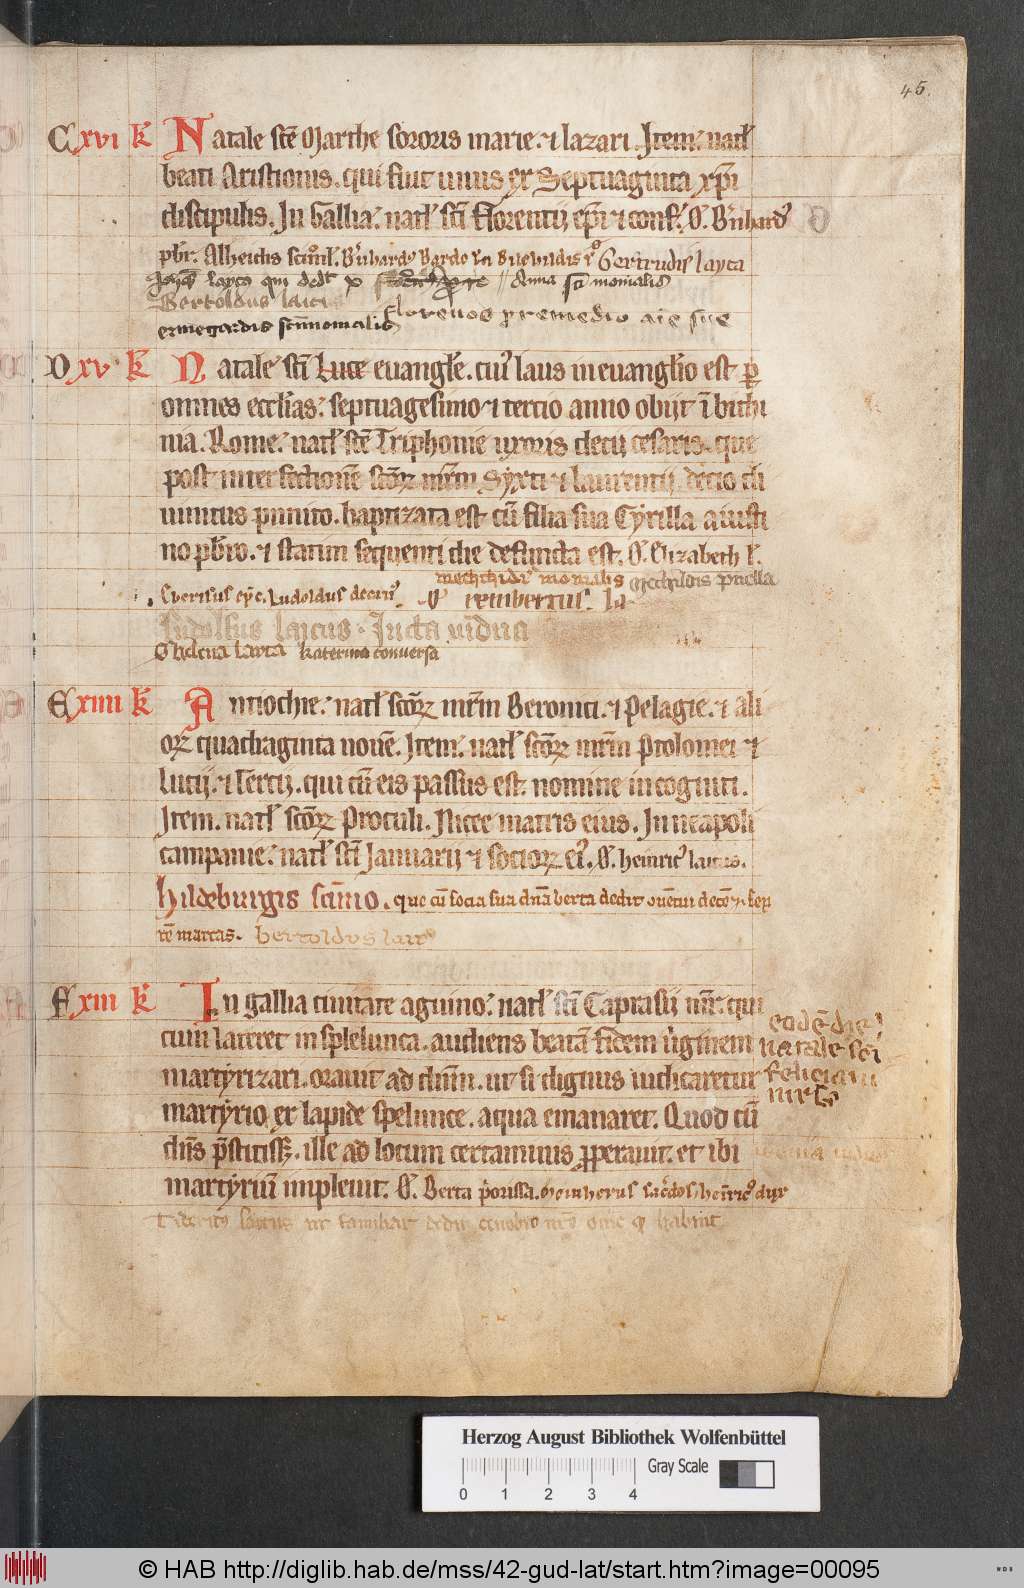 45.
C xvi k̄ Natale scē Marthe sororis marie. ⁊ lazari. Item. natł
beati Aristionis. qui fuit unus ex Septuaginta xp̄i
discipulis. In Gallia. natł sc̄i Florentij ep̄i ⁊ conf. O. B'nhard'
pbr. Alheidis Gertrudis layca
layca qui dedit x Anna sc̄i monialis
Bertoldus laicus
florenos p remedio aīe sue
ermegardis scīmonialis
D xv k̄ Natale sc̄i Luce euangłe. cui' laus in euangłio est p
omnes ecclīas. septuagesimo ⁊ tercio anno obijt ī bithi
nia. Rome. natł scē Triphonie uxoris decij cesaris. que
post interfectionē scōꝝ mr̄m Syxti ⁊ laurentij decio di
uinitus punito. baptizata est cū filia sua Cyrilla a iusti
no pbr̄o. ⁊ statim sequenti die defuncta est. O. Elizabeth l.
mechthidis monialis Mechtildis puella
Ludoldus O' rembertus. la
Ludolfus laicus. Jutta vidua
Ghelena layca katerina conversa
E xiiii k̄ Antiochie. natł scōꝝ mr̄m Beronici. ⁊ Pelagie. ⁊ ali
oꝝ quadraginta nouē. Item. natł scōꝝ mr̄m Ptolomei ⁊
Lucij. ⁊ Tercij. qui cū eis passus est. nomine incogniti.
Item. natł scōꝝ Proculi. Nicee matris eius. In neapoli
campanie. natł sc̄i Januarij ⁊ socioꝝ ei'. O. heinric' laicus.
Hildeburgis scīmo. que cū socia sua dn̄a berta dedit ꝯuētui decē ⁊ sep
tē marcas. bertoldus laic'
F xiii k̄ In gallia ciuitate aginno. natł sc̄i Caprasij mr̄. qui
cum lateret in splelunca. audiens beatā fidem uirginem
martyrizari. orauit ad dn̄m. ut si dignus iudicaretur
martyrio, ex lapide spelunce. aqua emanaret. Quod cū
dn̄s p̄stitisset. ille ad locum certaminis pp̄erauit. et ibi
martyriū impleuit. O. Berta p'orissa. meinherus sac'dos heinric' dux
eadē die
natale sc̄i
feliciani
mr̄is
laycus
Herzog August Bibliothek Wolfenbüttel
Gray Scale
0 1 2 3 4
© HAB http://diglib.hab.de/mss/42-gud-lat/start.htm?image=00095